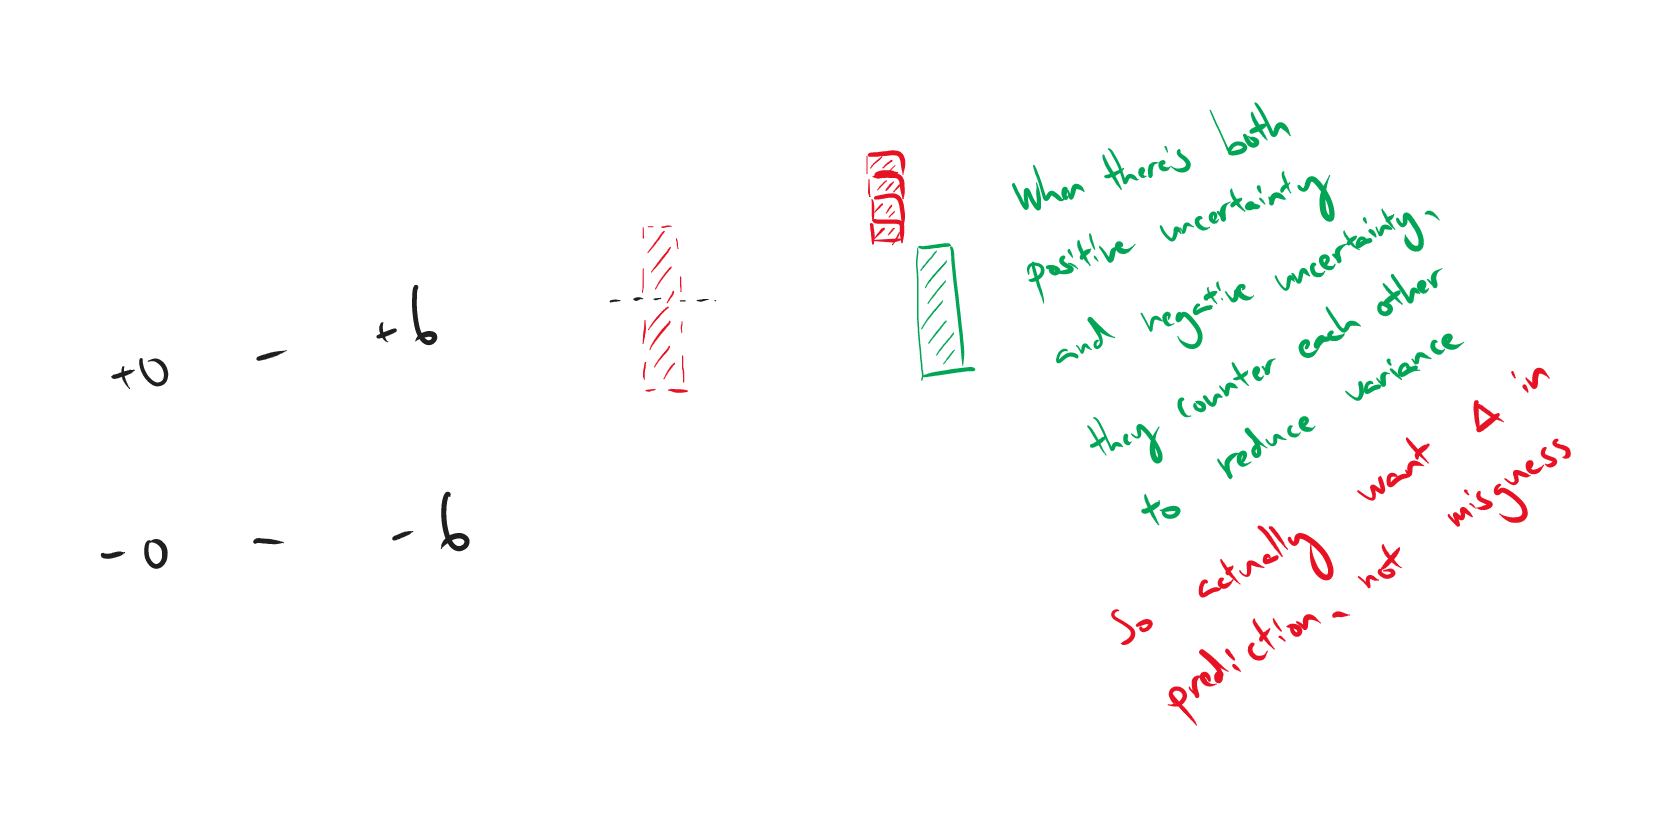 +0 - +6
-0 - -6
When there's both
positive uncertainty
and negative uncertainty,
they counter each other
to reduce variance
So actually want Δ in
prediction - not misgness